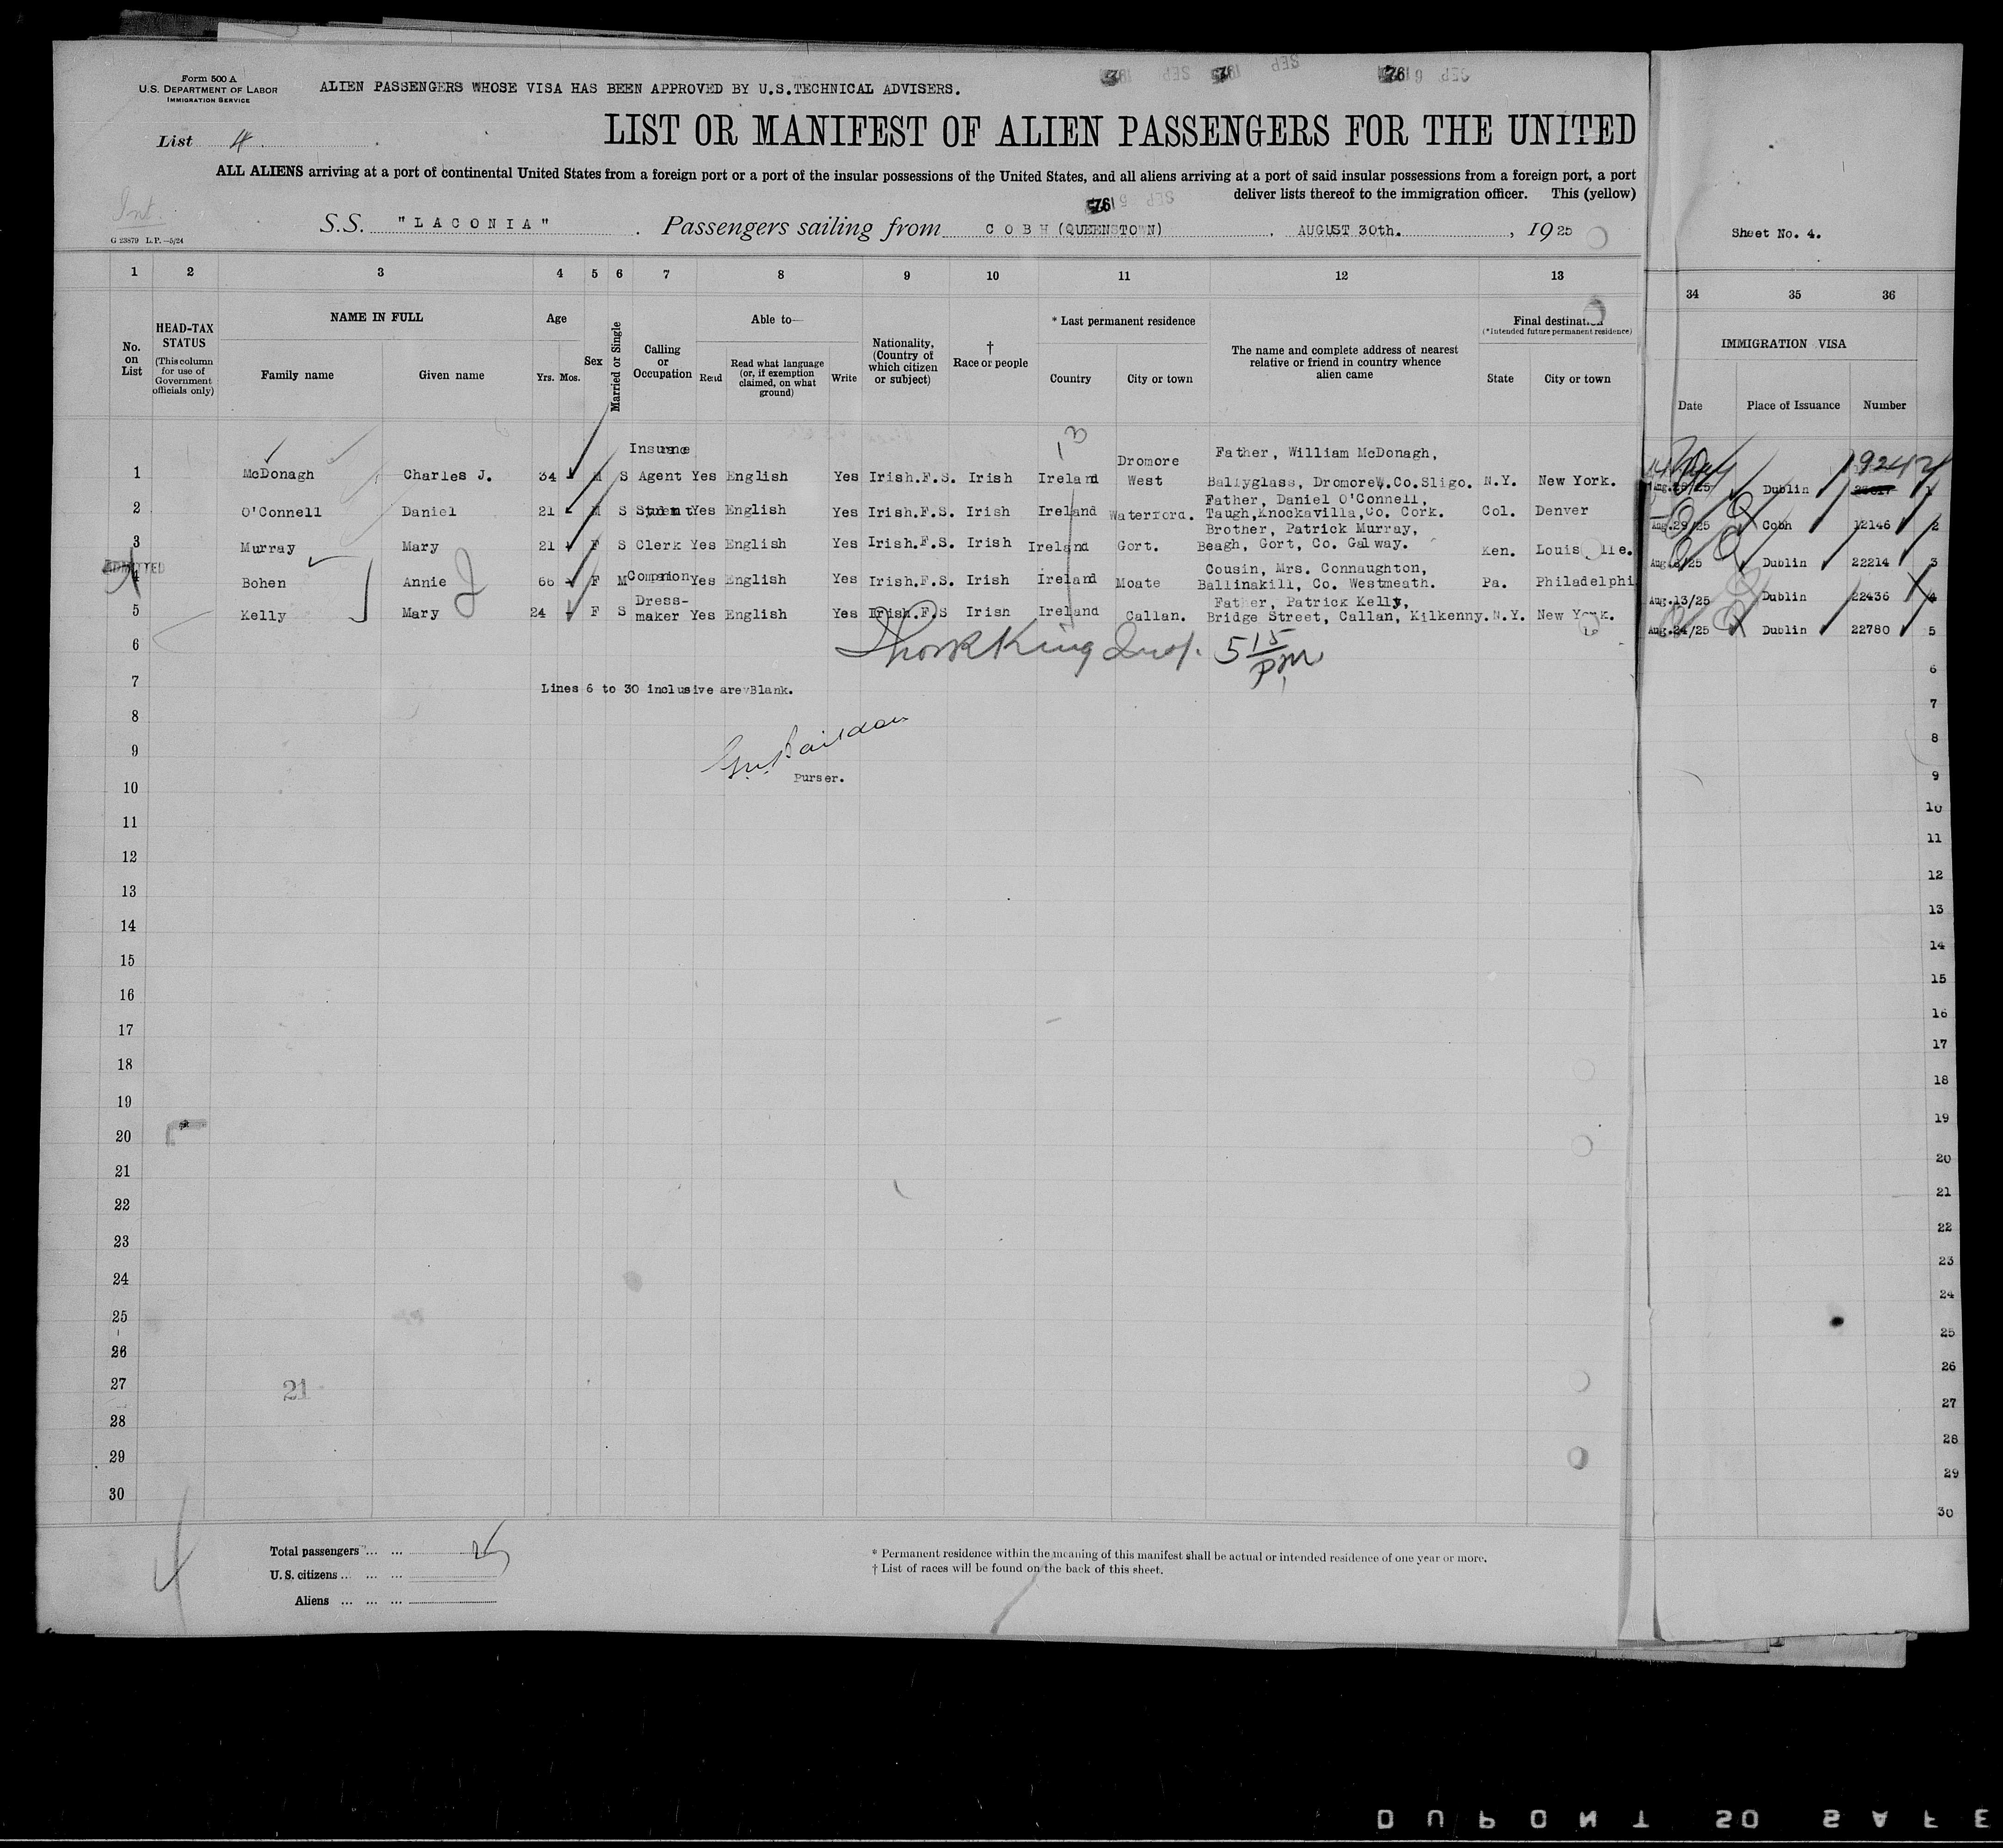 Form 500 A
U.S. DEPARTMENT OF LABOR
IMMIGRATION SERVICE
ALIEN PASSENGERS WHOSE VISA HAS BEEN APPROVED BY U.S.TECHNICAL ADVISERS.
List 4.
LIST OR MANIFEST OF ALIEN PASSENGERS FOR THE UNITED
ALL ALIENS arriving at a port of continental United States from a foreign port or a port of the insular possessions of the United States, and all aliens arriving at a port of said insular possessions from a foreign port, a port
deliver lists thereof to the immigration officer. This (yellow)
Int.
G 23879 L.P.—5/24
S.S. "LACONIA". Passengers sailing from COBH (QUEENSTOWN), AUGUST 30th., 1925
Sheet No. 4.
1 2 3 4 5 6 7 8 9 10 11 12 13 34 35 36
No. on List
HEAD-TAX STATUS (This column for use of Government officials only)
NAME IN FULL
Family name Given name
Age
Yrs. Mos.
Sex
Married or Single
Calling or Occupation
Able to—
Read Read what language (or, if exemption claimed, on what ground) Write
Nationality, (Country of which citizen or subject)
† Race or people
* Last permanent residence
Country City or town
The name and complete address of nearest relative or friend in country whence alien came
Final destination
(*Intended future permanent residence)
State City or town
IMMIGRATION VISA
Date Place of Issuance Number
1 McDonagh Charles J. 34 M S Insurance Agent Yes English Yes Irish.F.S. Irish Ireland Dromore West Father, William McDonagh, Ballyglass, DromoreW.Co.Sligo. N.Y. New York. Dublin 19242 1
2 O'Connell Daniel 21 M S Student Yes English Yes Irish.F.S. Irish Ireland Waterford. Father, Daniel O'Connell, Taugh,Knockavilla,Co. Cork. Col. Denver Aug.29/25 Cobh 12146 2
3 Murray Mary 21 F S Clerk Yes English Yes Irish.F.S. Irish Ireland Gort. Brother, Patrick Murray, Beagh, Gort, Co. Galway. Ken. Dublin 22214 3
ADMITTED
4 Bohen Annie 66 F M Companion Yes English Yes Irish.F.S. Irish Ireland Moate Cousin, Mrs. Connaughton, Ballinakill, Co. Westmeath. Pa. Philadelphi Aug.13/25 Dublin 22436 4
5 Kelly Mary 24 F S Dress-maker Yes English Yes Irish.F.S Irish Ireland Callan. Father, Patrick Kelly, Bridge Street, Callan, Kilkenny. N.Y. New York. Aug.24/25 Dublin 22780 5
6 King Insp. 5 15 pm 6
7 Lines 6 to 30 inclusive are Blank. 7
8 8
9 9
Purser.
10 10
11 11
12 12
13 13
14 14
15 15
16 16
17 17
18 18
19 19
20 20
21 21
22 22
23 23
24 24
25 25
26 26
27 21 27
28 28
29 29
30 30
Total passengers ... ...
U. S. citizens ... ... ...
Aliens ... ... ...
* Permanent residence within the meaning of this manifest shall be actual or intended residence of one year or more.
† List of races will be found on the back of this sheet.
DUPONT SO SAFE